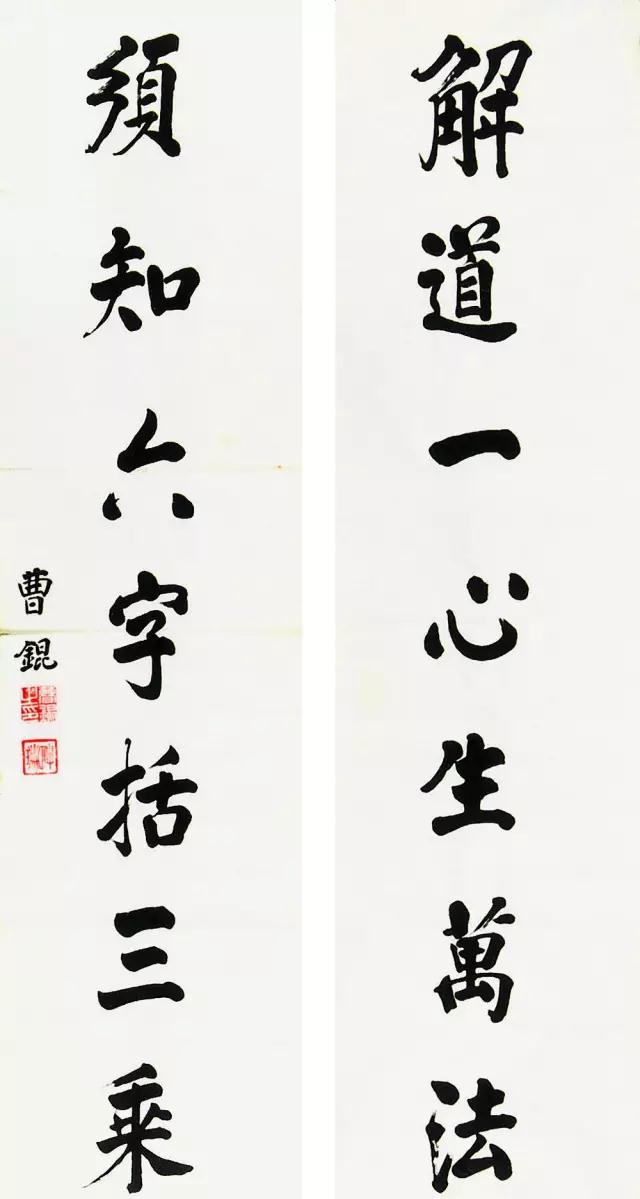 解道一心生萬法
須知六字括三乗
曹錕